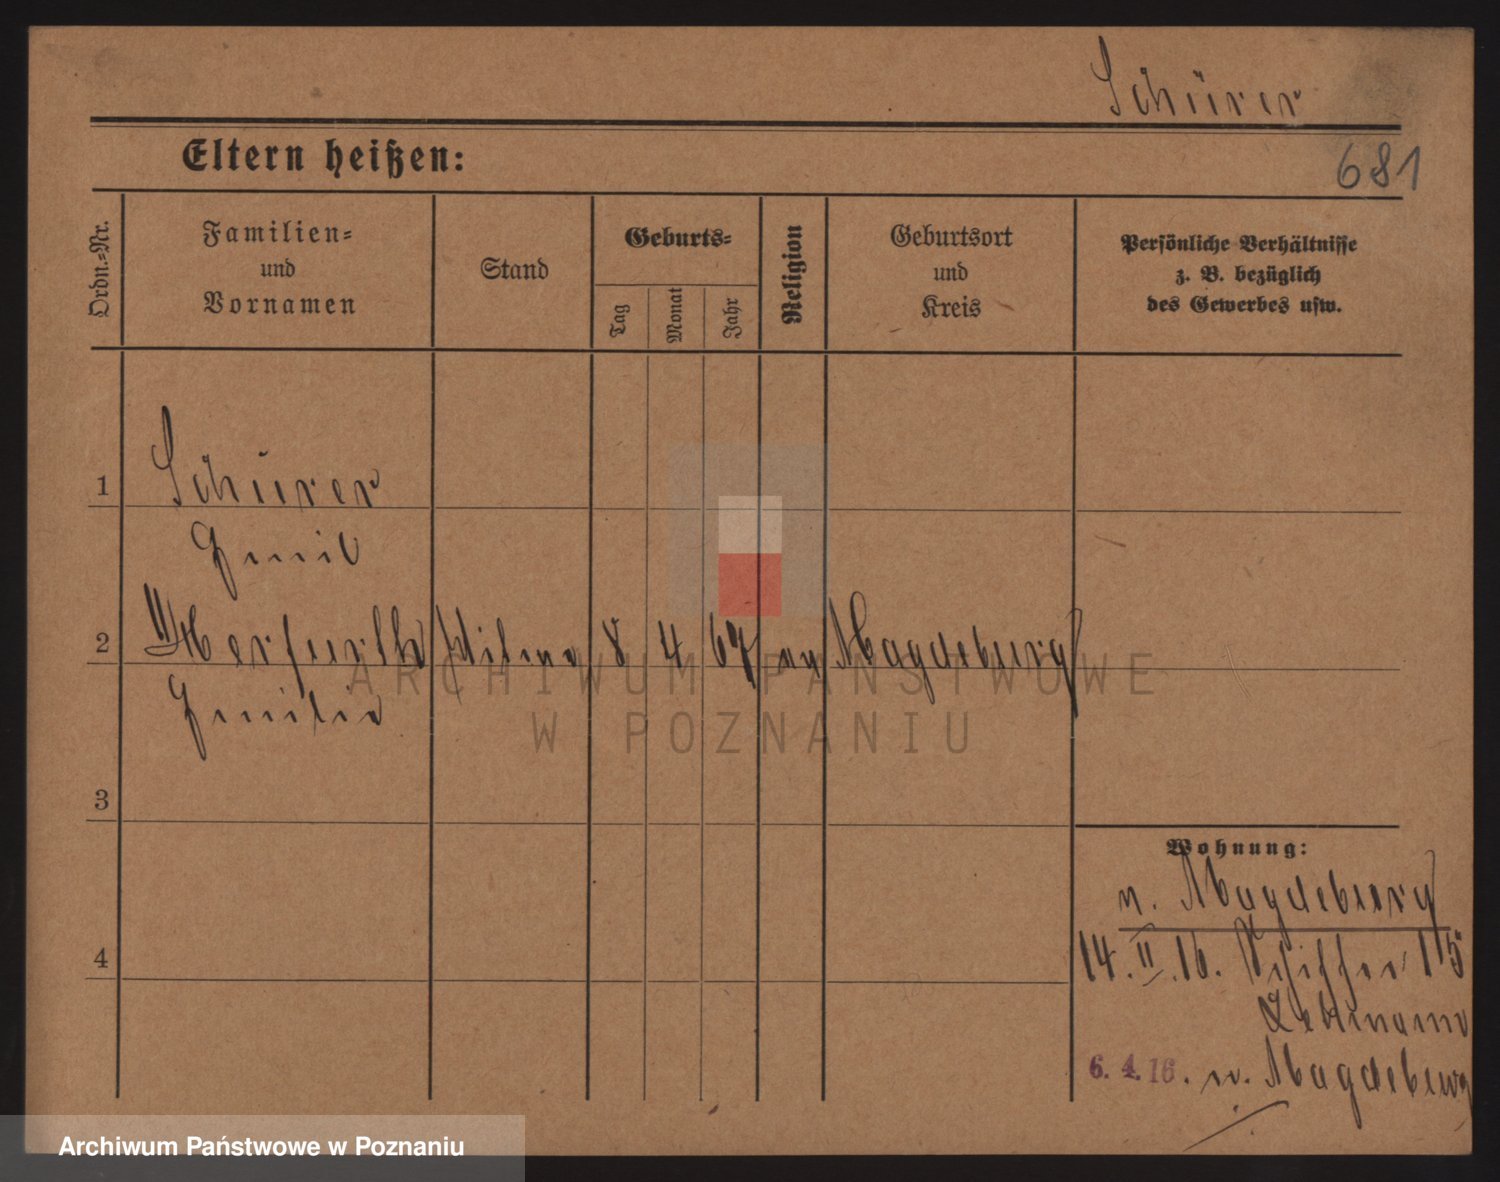 Schürer
681
Eltern heißen:
Ordn.-Nr.
Familien-
und
Vornamen
Stand
Geburts-
Tag
Monat
Jahr
Religion
Geburtsort
und
Kreis
Persönliche Verhältnisse
z. B. bezüglich
des Gewerbes usw.
1
Schürer
Emil
2
Herfurth
8 4 67 ev Magdeburg
Emilie
3
Wohnung:
n. Magdeburg
4
14. II. 16. 115
Lehmann
6. 4. 16. n. Magdeburg
ARCHIWUM PAŃSTWOWE
W POZNANIU
Archiwum Państwowe w Poznaniu